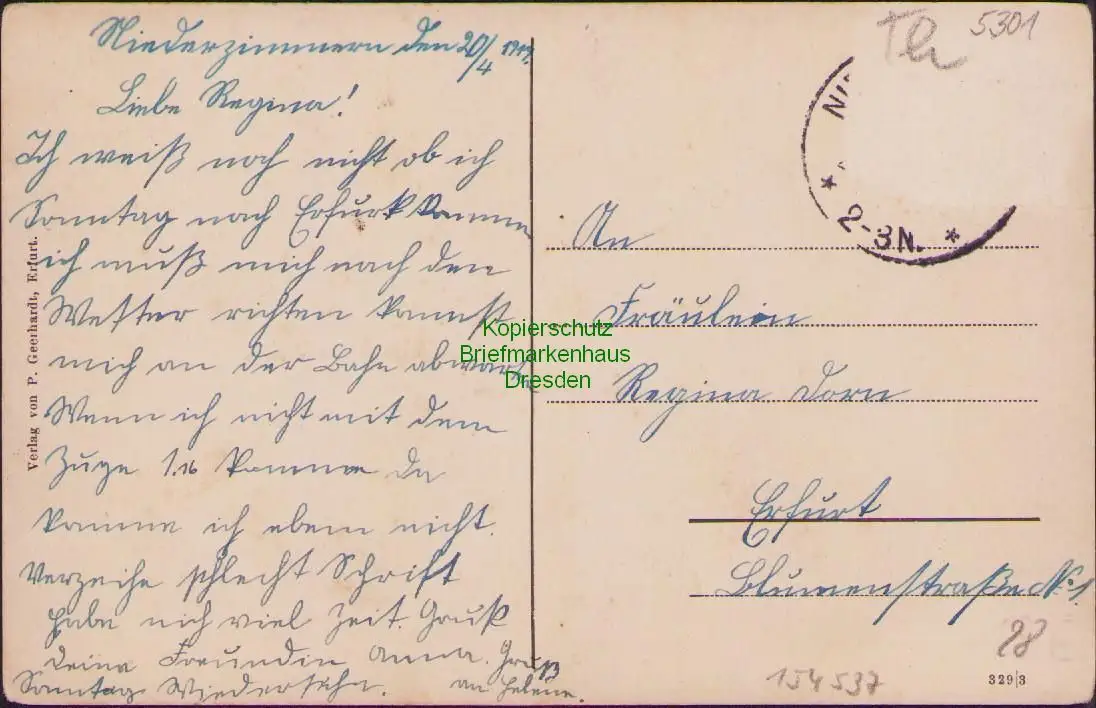 Niederzimmern den 20/4 1919.
Liebe Regina!
Ich weiß noch nicht ob ich
Sonntag nach Erfurt komme
ich muß mich nach den
Wetter richten kannst
mich an der Bahn abwarte
Wenn ich nicht mit dem
Zuge 1.16 komme da
komme ich eben nicht.
Verzeihe schlecht Schrift
habe nich viel Zeit. Gruß
Deine Freundin Anna. Gruß
Sonntag Wiedersehn. an Helene.
Verlag von P. Geenhardt, Erfurt.
Th 5301
NI
* 2-3N. *
An
Fräulein
Regina Dorn
Erfurt
Blumenstraße No 1
Kopierschutz
Briefmarkenhaus
Dresden
28
154537
329|3